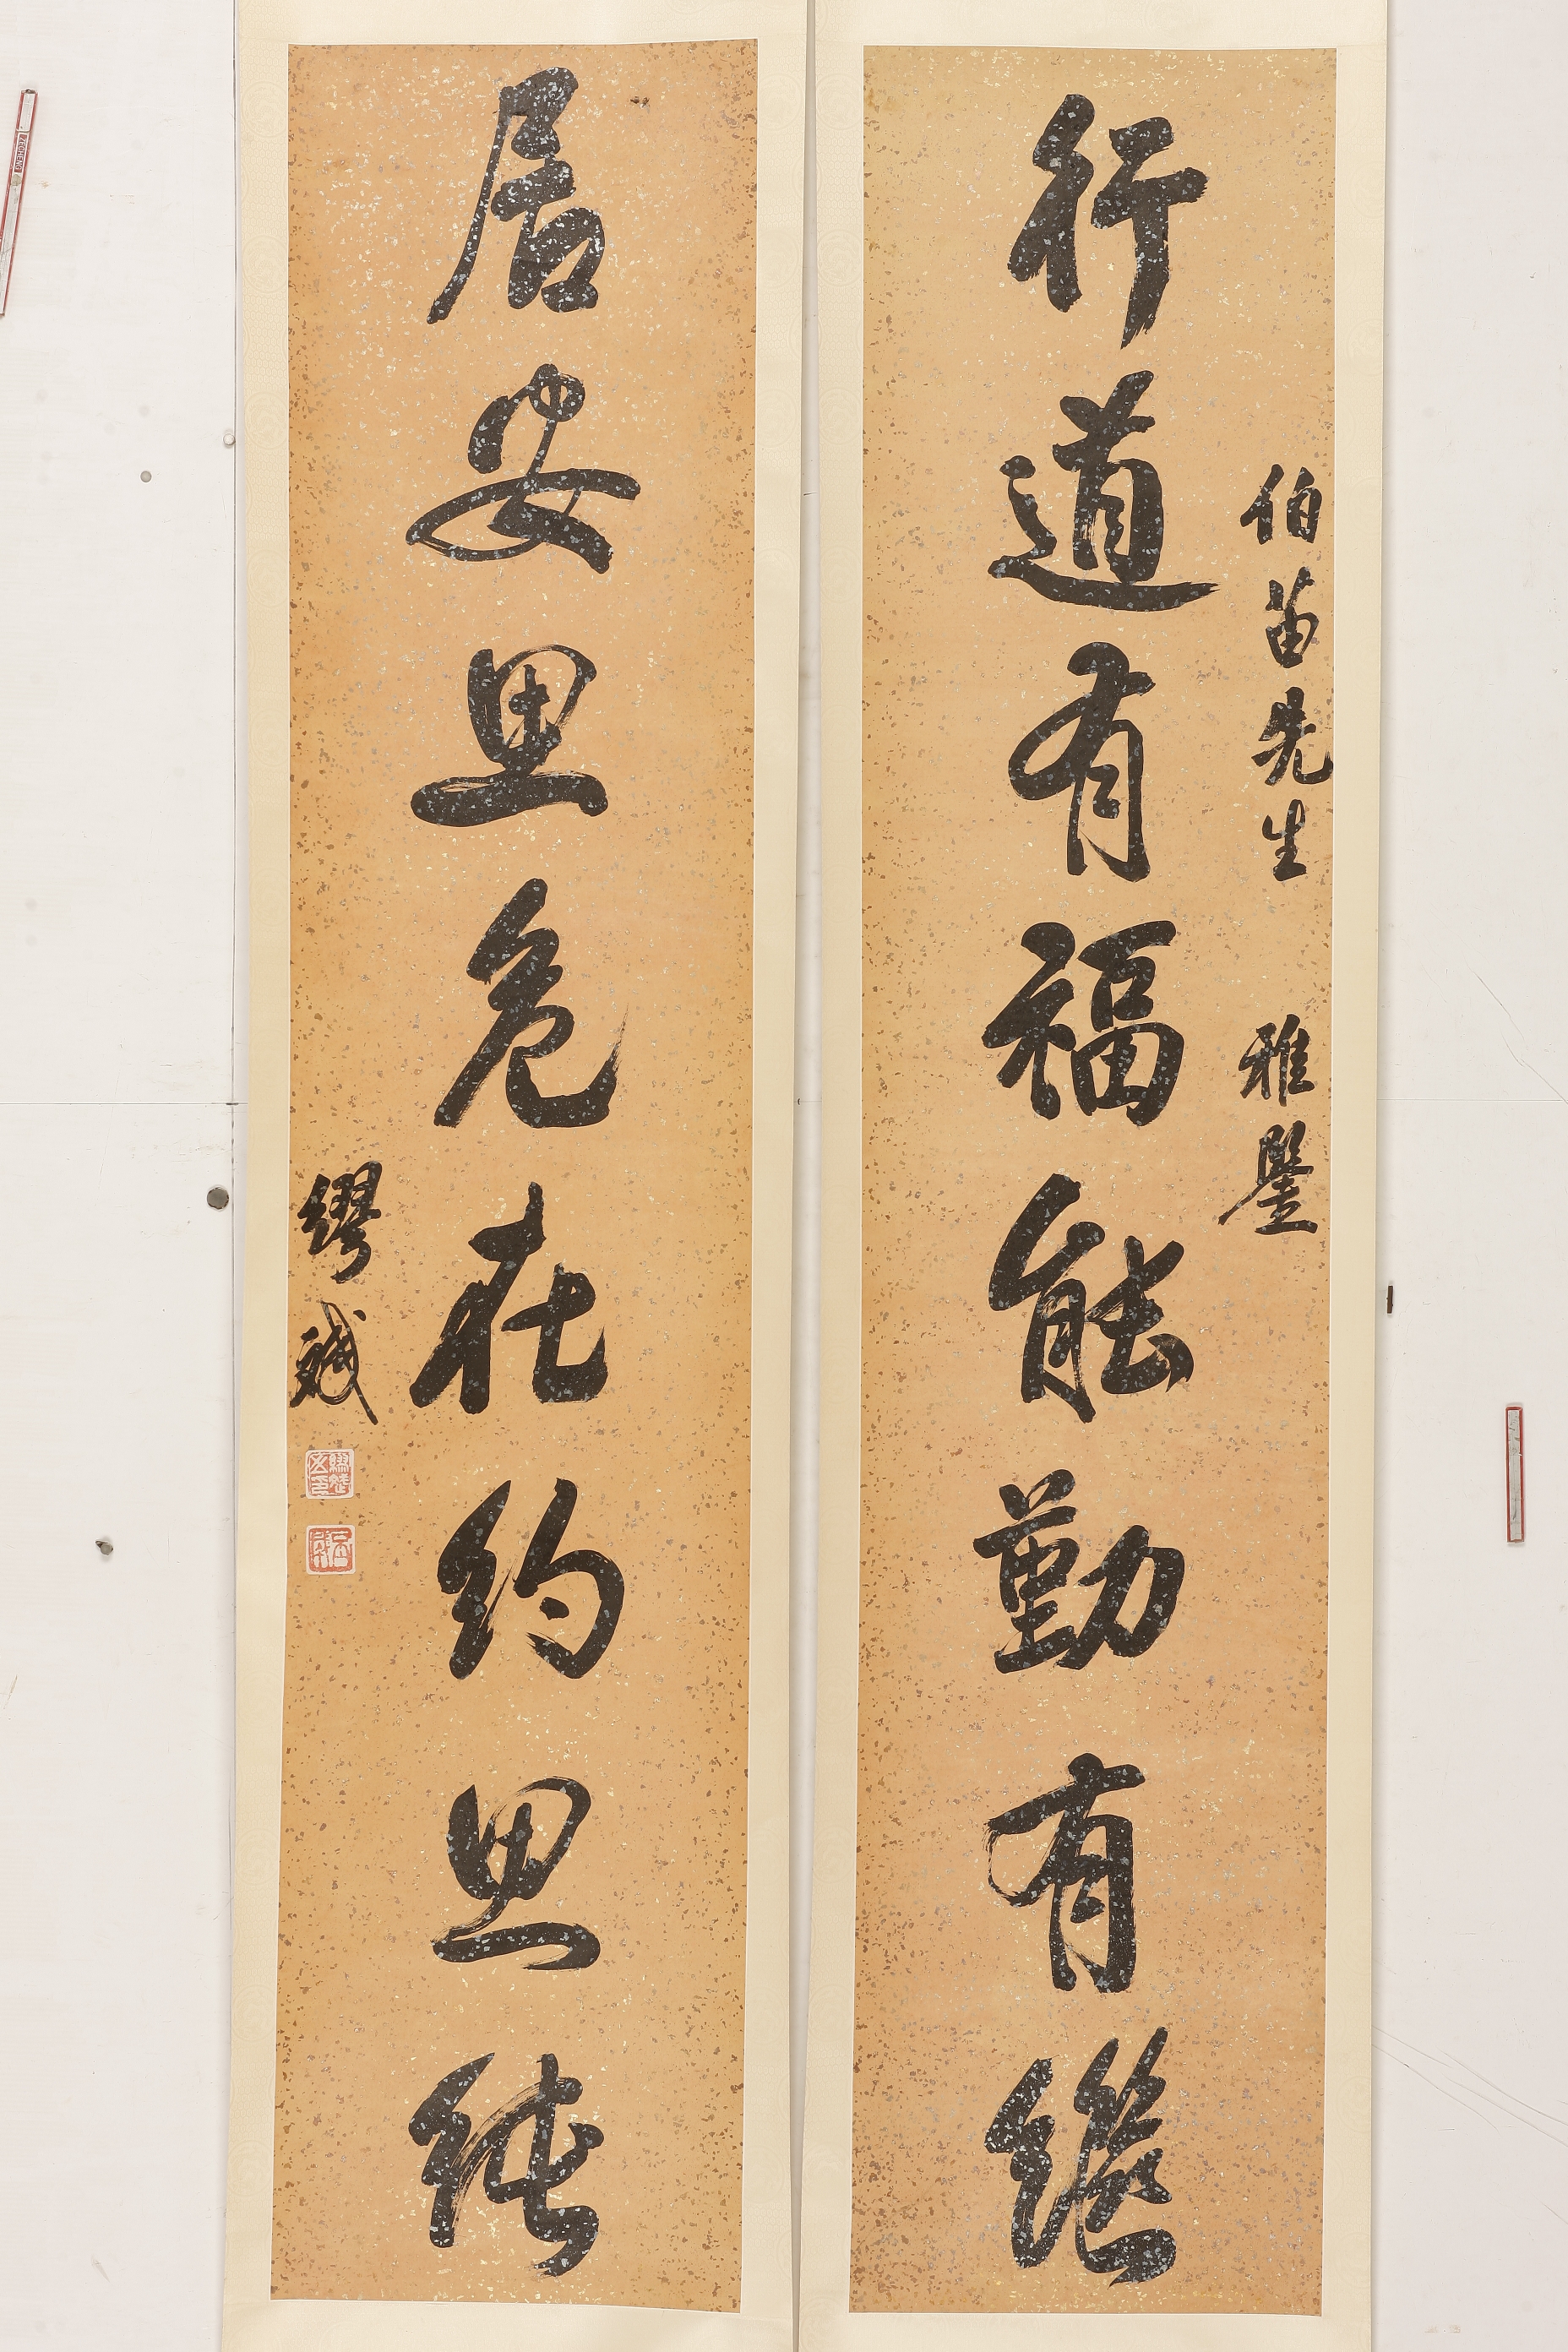 伯苗先生 雅鑒
行道有福能勤有繼
居安思危在約思純
繆斌
ZECHENG